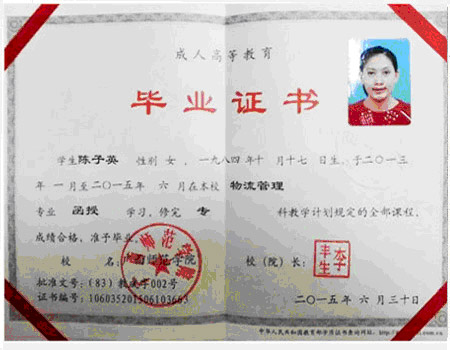 成人高等教育
毕业证书
学生陈子英 性别 女，一九八四年十月十七日生，于二〇一三
年一月至二〇一五年六月在本校 物流管理
专业 函授 学习，修完 专 科教学计划规定的全部课程，
成绩合格，准予毕业。
校 名： 师范学院
校（院）长：
李丰生
批准文号：（83）教成字002号
证书编号：106035201506103663
二〇一五年六月三十日
中华人民共和国教育部学历证书查询网址：